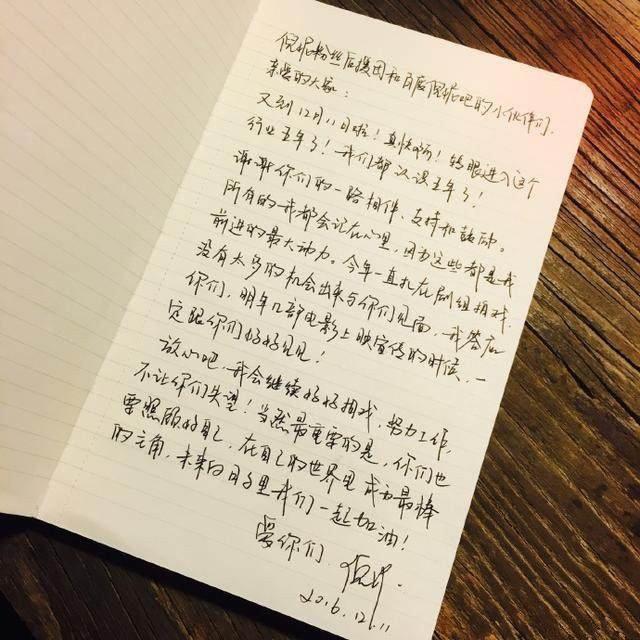 倪妮粉丝后援团和百度倪妮吧的小伙伴们,
亲爱的大家:
又到12月11日啦!真快啊!转眼进入这个
行业五年了!我们都认识五年了!
谢谢你们的一路相伴、支持和鼓励。
所有的我都会记在心里,因为这些都是我
前进的最大动力。今年一直扎在剧组拍戏,
没有太多的机会出来与你们见面,我答应
你们,明年几部电影上映宣传的时候,一
定跟你们好好见见!
放心吧,我会继续好好拍戏,努力工作,
不让你们失望!当然最重要的是,你们也
要照顾好自己,在自己的世界里成为最棒
的主角,未来的日子里我们一起加油!
爱你们 倪妮.
2016.12.11